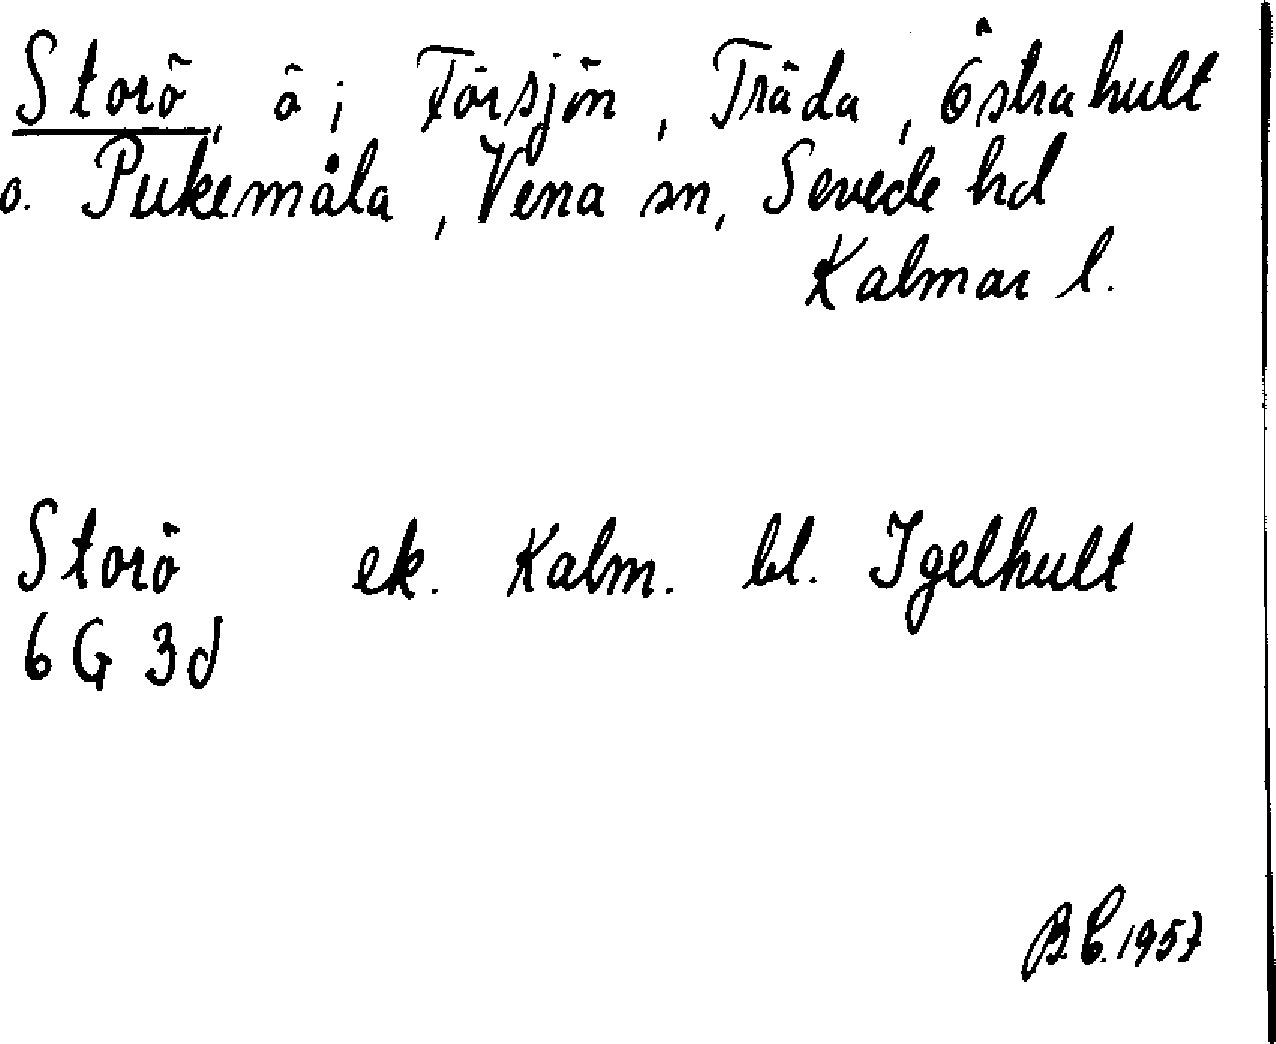 Storö, ö i Försjön, Träda, Östrahult
o. Pukemåla, Vena sn, Sevede hd
Kalmar l.
Storö ek. Kalm. bl. Igelhult
6G 3d
B.C. 1957